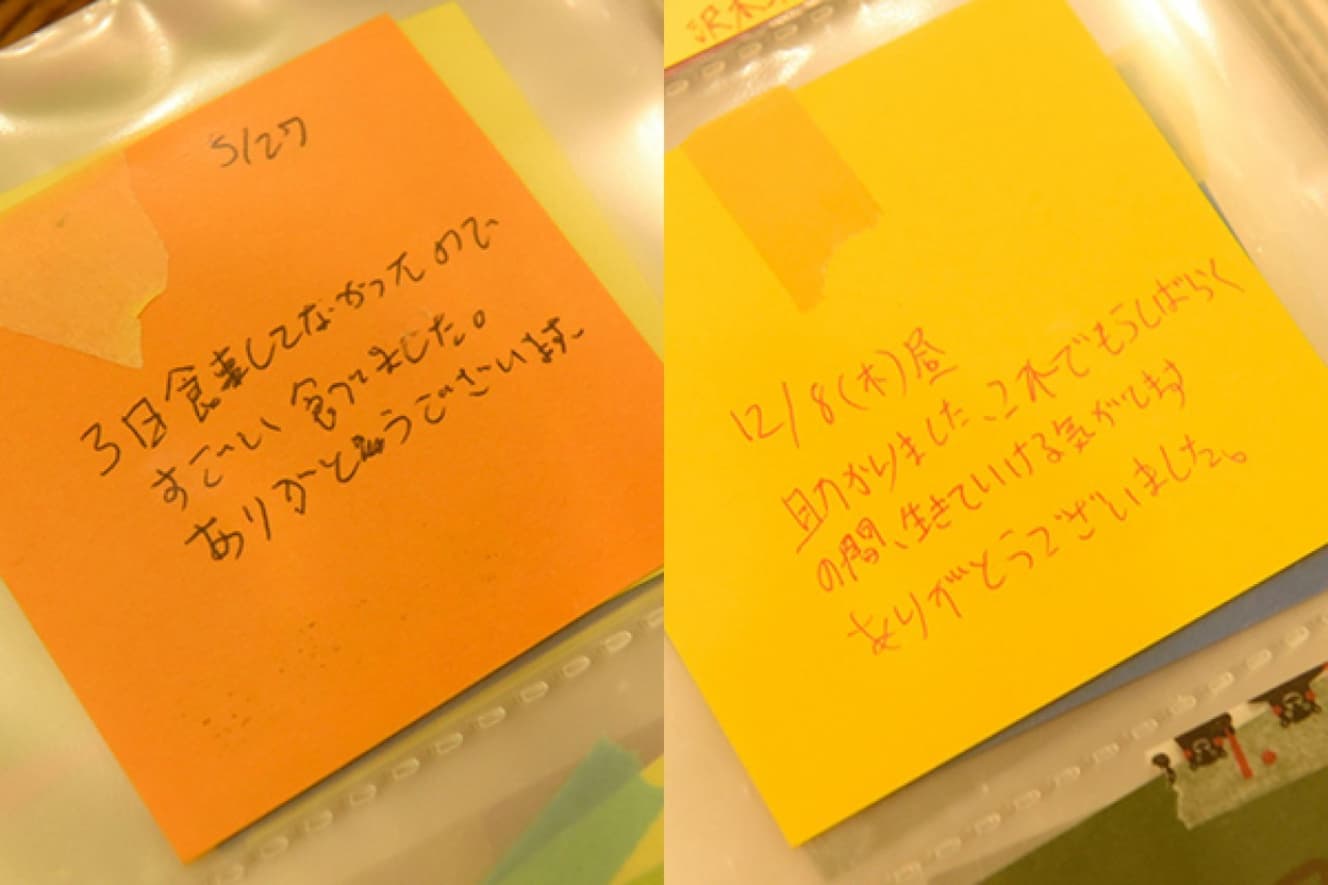 5/27
3日食事してなかったので、
すごい食ってました。
ありがとうございます。
12/8(木)昼
助かりました、これでもうしばらく
の間、生きていける気がします
ありがとうございました。